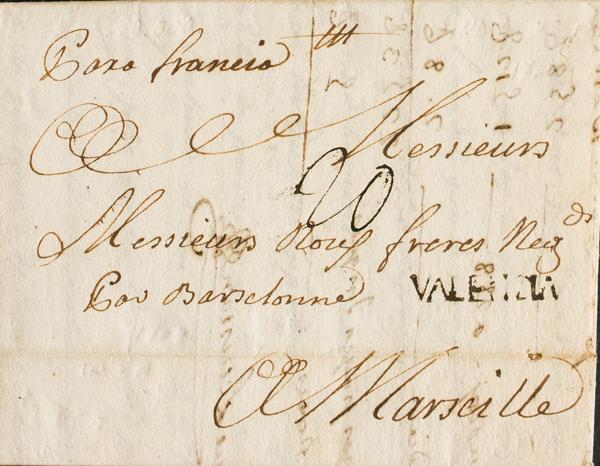 Para francia
A Messieurs
20
Messieurs Roux freres Neg.ds
Par Barselonne VALENCIA
A Marseille